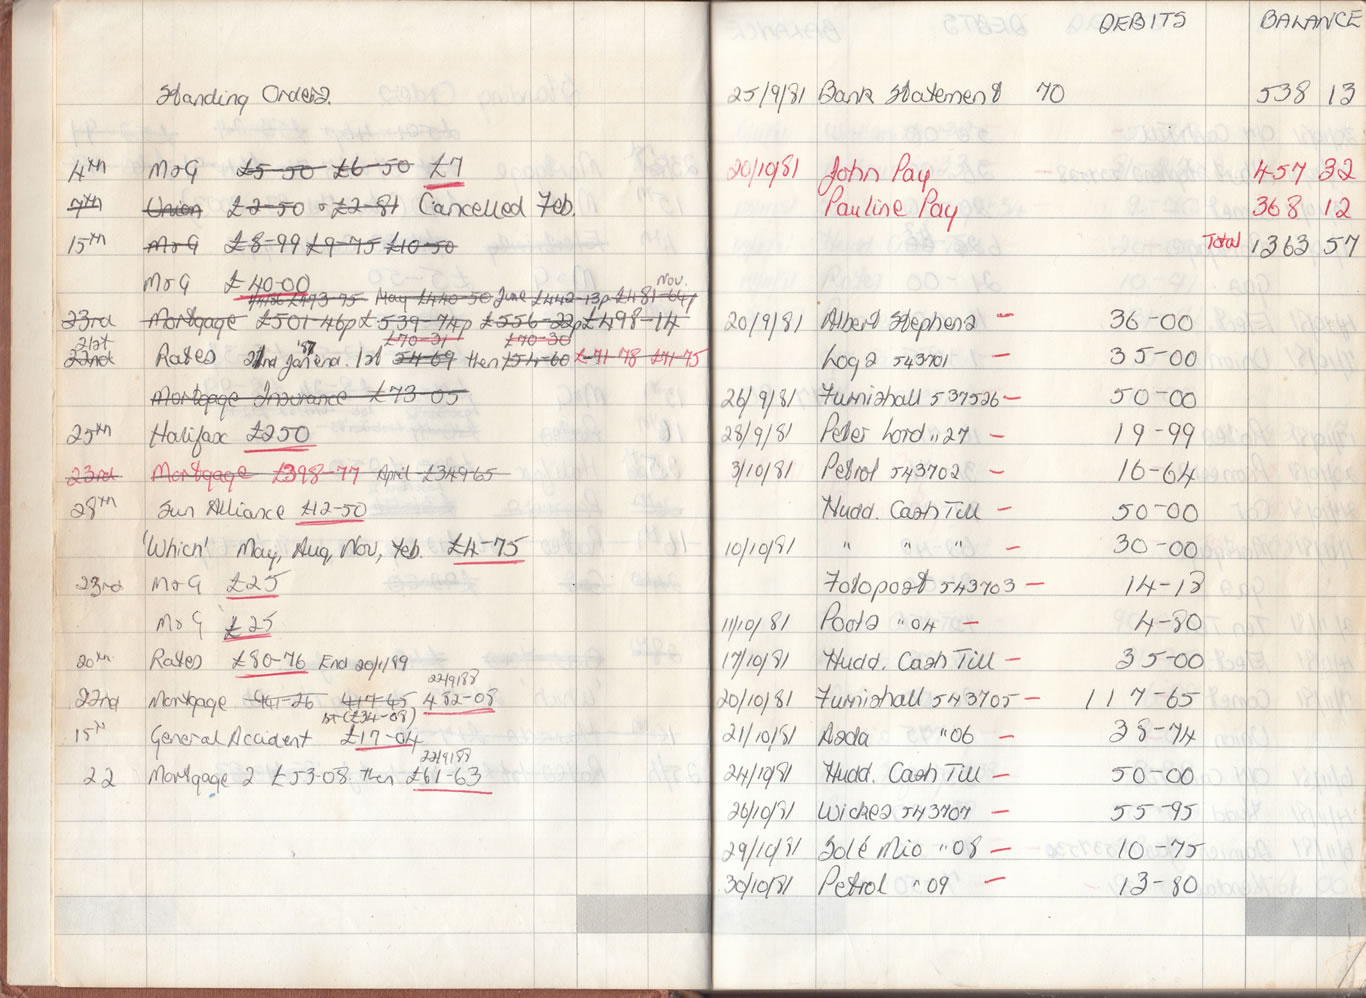 Standing Orders.
4th M&G £5-50 £6-50 £7
7th Union £2-50 £2-81 Cancelled Feb.
15th M&G £8-99 £9-75 £10-50
M&G £40-00
Nov.
£493-75 May £440-50 June £442-13p £481-64
23rd Mortgage £501-46p £539-74p £556-22p £498-14
21st £70-31 £70-30
22nd Rates 1st 54-69 then £54-60 £71-78 £71-75
Mortgage Insurance £73-05
25th Halifax £250
23rd Mortgage £398-77 April £349-65
28th Sun Alliance £12-50
'Which' May, Aug, Nov, Feb. £4-75
23rd M&G £25
M&G £25
20th Rates £80-76 End 20/1/89
22/9/88
22nd Mortgage 941-26 417-45 482-08
1st (£34-08)
15th General Accident £17-04
22/9/88
22 Mortgage 2 £53-08 then £61-63
DEBITS BALANCE
25/9/81 Bank Statement 70 538 13
20/10/81 John Pay 457 32
Pauline Pay 368 12
Total 1363 57
20/9/81 Albert Stephens - 36-00
Logs 543701 35-00
26/9/81 Furnishall 537526 - 50-00
28/9/81 Peter Lord " 27 - 19-99
3/10/81 Petrol 543702 - 16-64
Hudd. Cash Till - 50-00
10/10/81 " " " - 30-00
Fotopost 543703 - 14-13
11/10/81 Poota " 04 - 4-80
17/10/81 Hudd. Cash Till - 35-00
20/10/81 Furnishall 543705 - 117-65
21/10/81 Asda " 06 - 38-74
24/10/81 Hudd. Cash Till - 50-00
26/10/81 Wickes 543707 - 55-95
29/10/81 Solé Mio " 08 - 10-75
30/10/81 Petrol " 09 - 13-80